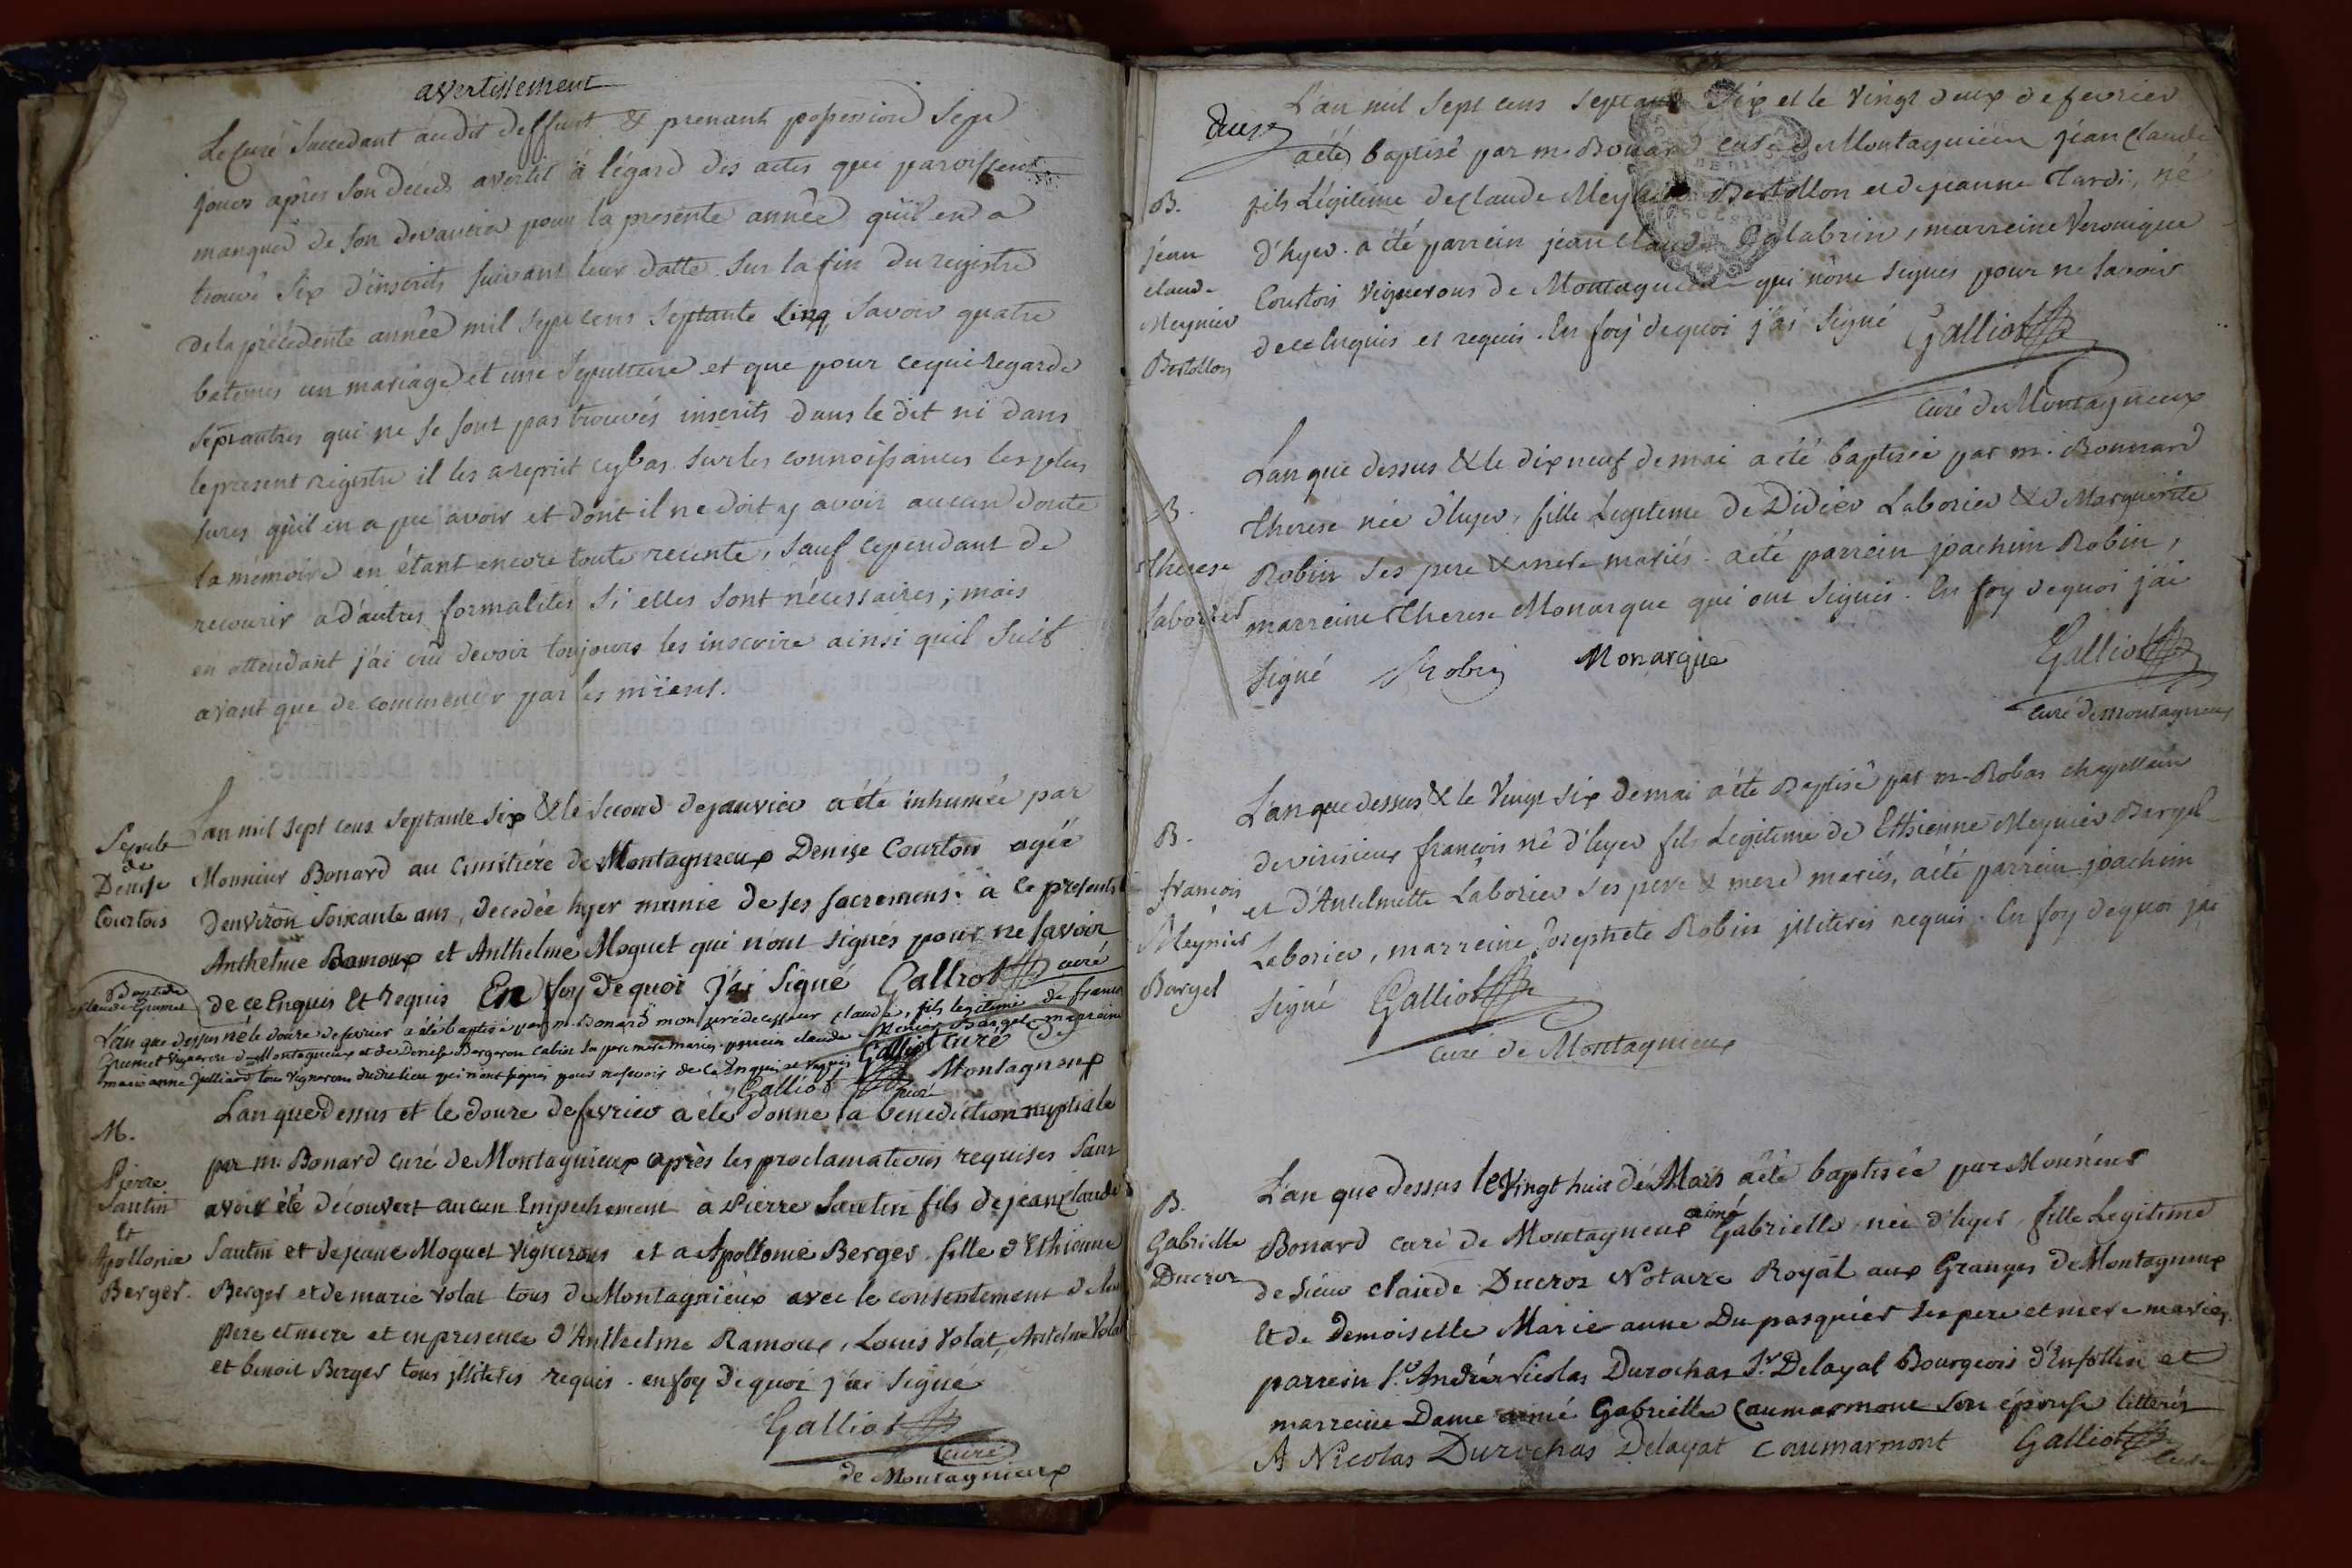 avertissement
Le Curé succedant au dit deffunt & prenant possession sept
jours après son décéd avertit à l'égard des actes qui paroissent
manqués de son devancier pour la presente année qu'il en a
trouvé six d'inscrits suivant leur datte sur la fin du registre
de la précédente année mil sept cens septante cinq, savoir quatre
batemes un mariage et une sepulture et que pour ce qui regarde
sept autres qui ne se sont pas trouvés inscrits dans le dit ni dans
le present registre il les a reprit cy bas sur les connoissances les plus
sures qu'il en a pu avoir et dont il ne doit y avoir aucun doute
la mémoire en étant encore toute recente, sauf cependant de
recourir a d'autres formalités si elles sont nécessaires; mais
en attendant j'ai cru devoir toujours les inscrire ainsi quil suit
avant que de commencer par les miens.
Sepult
de
Denise
Courtois
L'an mil sept cens septante six & le second de janvier a été inhumée par
Monsieur Bonard au cimitiére de Montagnieux Denise Courtois agée
d'environ soixante ans, decedée hyer munie de ses sacremens: à ce presents
Anthelme Ramoux et Anthelme Moguet qui n'ont signés pour ne savoir
de ce Enquis Et Requis En foy de quoi j'ai signé Galliot curé
Claude Grumet
L'an que dessus né le douze de fevrier a été baptisé par m. Bonard mon prédecesseur claude, fils legitime de franc
Grumet Vigneron de Montagnieux et de Denise Bergeron Cabin sa pere mere mariés. parrein claude Meynier Bargel marreine
marianne Julliard tous Vignerons dudit lieu qui n'ont signés pour ne sevoir de ce Enquis et requis Galliot Curé de
Galliot curé Montagneux
M.
Pierre
Santin
Et
Apollonie
Berger.
L'an que dessus et le douze de fevrier a été donné la benediction nuptiale
par m. Bonard curé de Montagnieux après les proclamations requises sans
avoir été découvert aucun Empechement à Pierre Santin fils de jean Claude
Santin et de jeane Moguet Vignerons et a Apollonie Berger fille d'Ethienne
Berger et de marie Volat tous de Montagnieux avec le consentement de leur
pere et mere et en presence d'Anthelme Ramoux, Louis Volat, Antelme Volat
et benoit Berger tous illiterés requis. en foy de quoi j'ai signé
Galliot
curé
de Montagnieux
L'an mil sept cens septante six et le vingt deux de fevrier
deux
a été baptisé par m. Bonard curé de Montagnieu jean Claude
B.
jean
claude
Meynier
Bertollon
fils Légitime de Claude Meynier Bertollon et de jeanne Tardi, né
d'hyer. a été parrein jean Claude Galabrin, marreine Veronique
Courtois Vignerons de Montagnieu qui n'ont signés pour ne savoir
de ce Enquis et requis. En foy de quoi j'ai signé Galliot
Curé de Montagneux
B.
Therese
Laborier
L'an que dessus & le dix neuf de mai a été baptisée par m. Bonnard
Therese née d'hyer, fille Legiteme de Didier Laborier & de Marguerite
Robin ses pere & mere mariés. a été parrein joachim Robin,
marreine Therese Monarque qui ont signés. En foy de quoi j'ai
signé Robin Monarque Galliot
curé de montagneux
B.
françois
Meynier
Bargel
L'an que dessus & le Vingt six de mai a été Baptisé par m. Robas chapellain
de virisieux françois né d'hyer fils Legiteme de Ethienne Meynier Bargel
et d'Antelmette Laborier ses pere & mere mariés, a été parrein joachim
Laborier, marreine Josephete Robin illiterés requis. En foy de quoi j'ai
signé Galliot
curé de Montagneux
B.
Gabrielle
Ducroz
L'an que dessus le Vingt huit de Mars a été baptisée par Monsieur
Bonard curé de Montagneux aimé Gabrielle née d'hyer, fille Legitime
de sieur claude Ducroz Notaire Royal aux Granges de Montagneux
Et de Demoiselle Marie anne Dupasquier ses pere et mere mariés.
parrein Sr. André Nicolas Durochas Sr. Delayat Bourgeois d'Enfollin et
marreine Dame aimé Gabrielle Caumarmont son épouse litterés
A Nicolas Durochas Delayat Coumarmont Galliot
curé